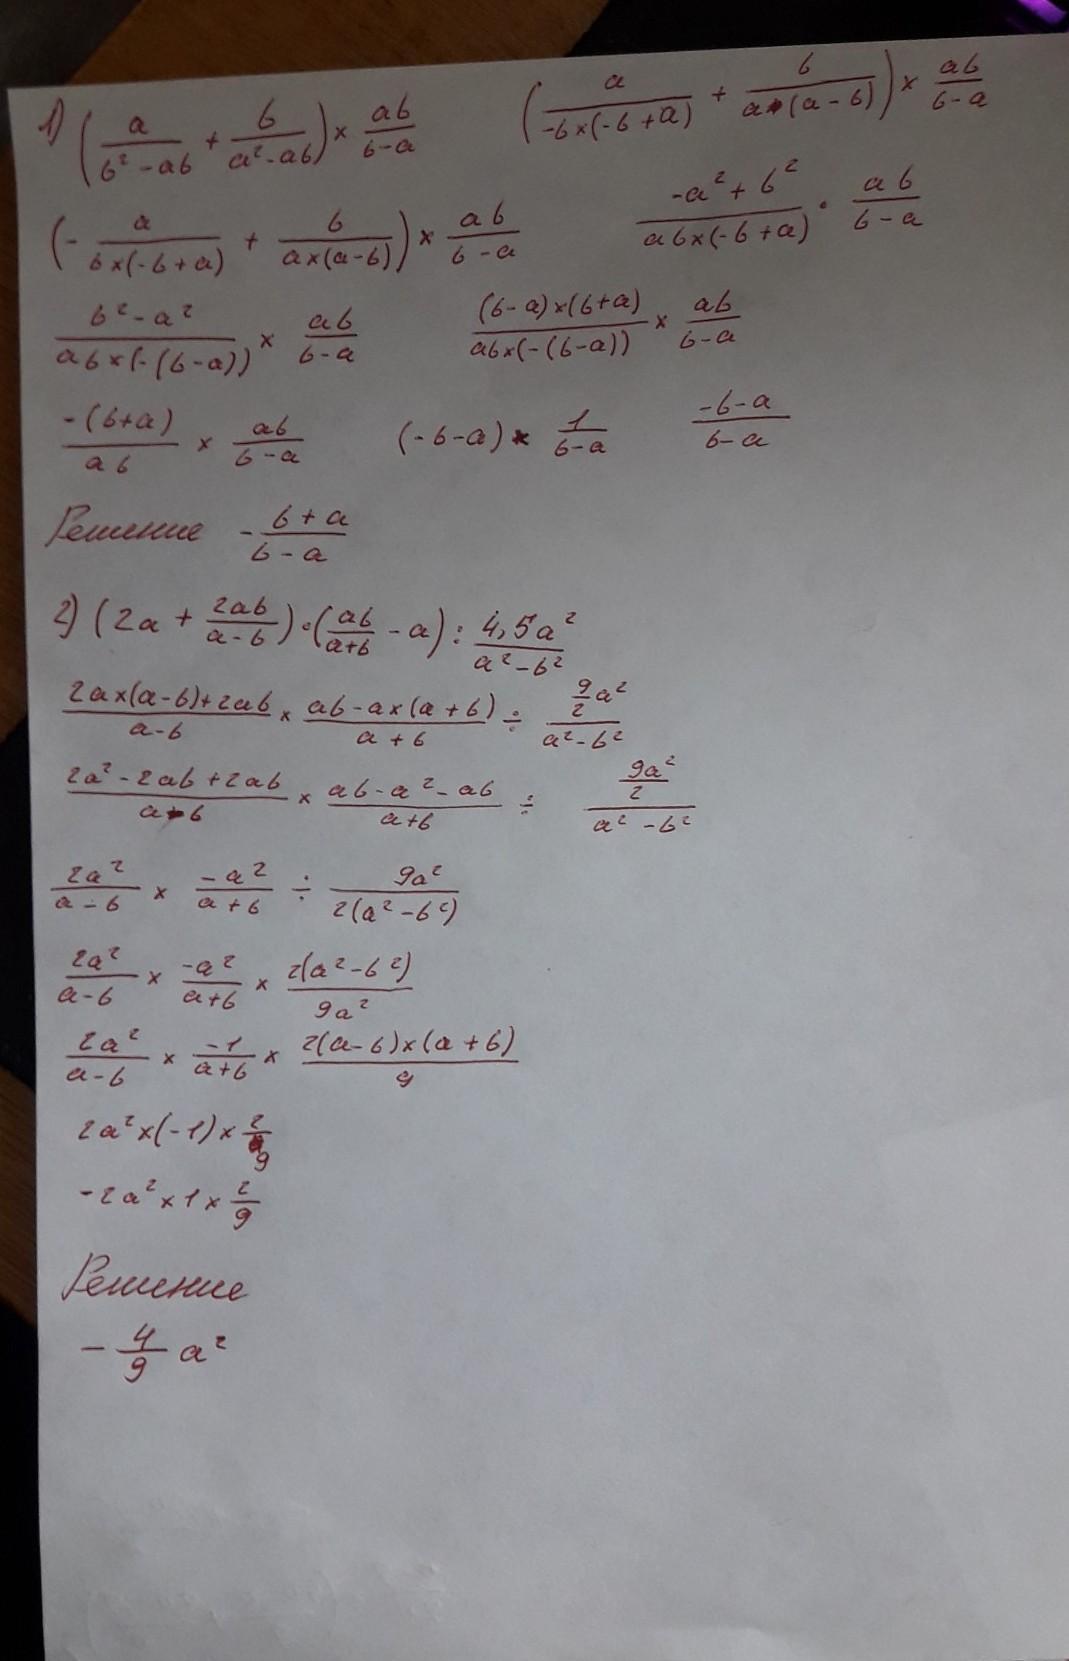 1) (a/(b² - ab) + b/(a² - ab)) × ab/(b - a)     (a/(-b×(-b + a)) + b/(a×(a - b))) × ab/(b - a)
(- a/(b×(-b + a)) + b/(a×(a - b))) × ab/(b - a)     (-a² + b²)/(ab×(-b + a)) · ab/(b - a)
(b² - a²)/(ab×(-(b - a))) × ab/(b - a)     ((b - a)×(b + a))/(ab×(-(b - a))) × ab/(b - a)
-(b + a)/(ab) × ab/(b - a)     (-b - a) × 1/(b - a)     (-b - a)/(b - a)
Решение - (b + a)/(b - a)
2) (2a + 2ab/(a - b)) · (ab/(a + b) - a) : 4,5a²/(a² - b²)
(2a×(a - b) + 2ab)/(a - b) × (ab - a×(a + b))/(a + b) ÷ (9/2 a²)/(a² - b²)
(2a² - 2ab + 2ab)/(a - b) × (ab - a² - ab)/(a + b) ÷ (9a²/2)/(a² - b²)
2a²/(a - b) × -a²/(a + b) ÷ 9a²/(2(a² - b²))
2a²/(a - b) × -a²/(a + b) × 2(a² - b²)/(9a²)
2a²/(a - b) × -1/(a + b) × (2(a - b)×(a + b))/9
2a² × (-1) × 2/9
-2a² × 1 × 2/9
Решение
- 4/9 a²